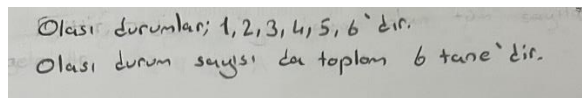 Olası durumlar; 1, 2, 3, 4, 5, 6'dır.
Olası durum sayısı da toplam 6 tane'dir.